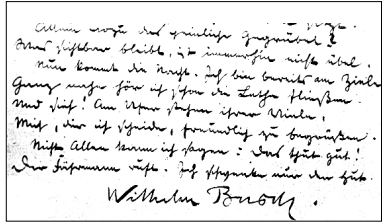 Allein wozu das peinliche Gegrübel?
Was sichtbar bleibt, ist immerhin nicht übel.
Nun kommt die Nacht. Ich bin bereits am Ziele.
Ganz nahe hör ich schon die Lethe fließen.
Und sieh! Am Ufer stehen ihrer Viele,
Mich, der ich scheide, freundlich zu begrüßen.
Nicht Allen kann ich sagen: Das thut gut!
Der Fährmann ruft. Ich schwenke nur den Hut.
Wilhelm Busch.